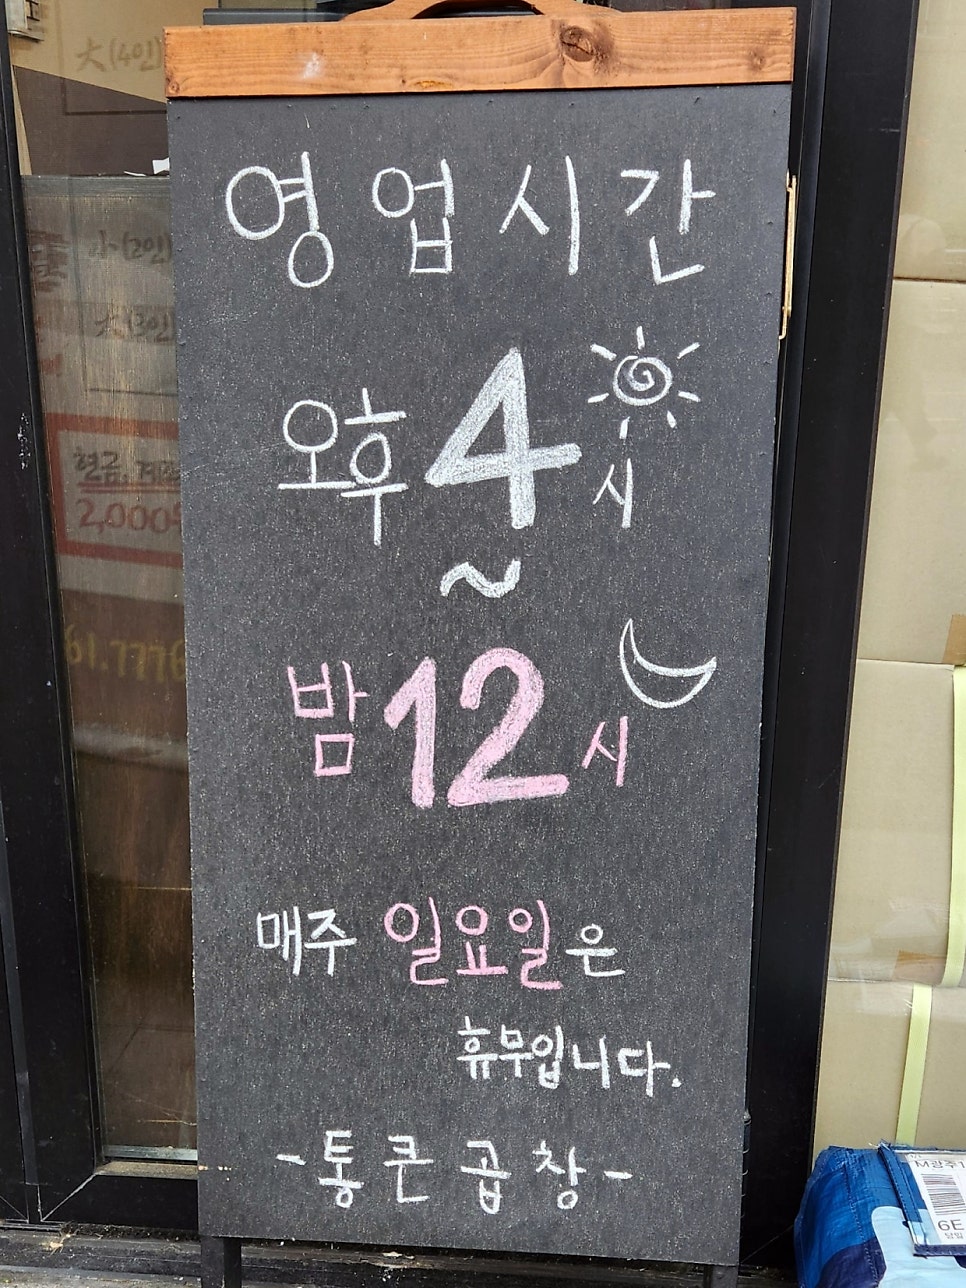 영업시간
오후 4시
~
밤 12시
매주 일요일은
휴무입니다.
-통큰곱창-
大(4인)
小(2인)
大(3인)
현금,
2,000
61.7776
M광주1
6E